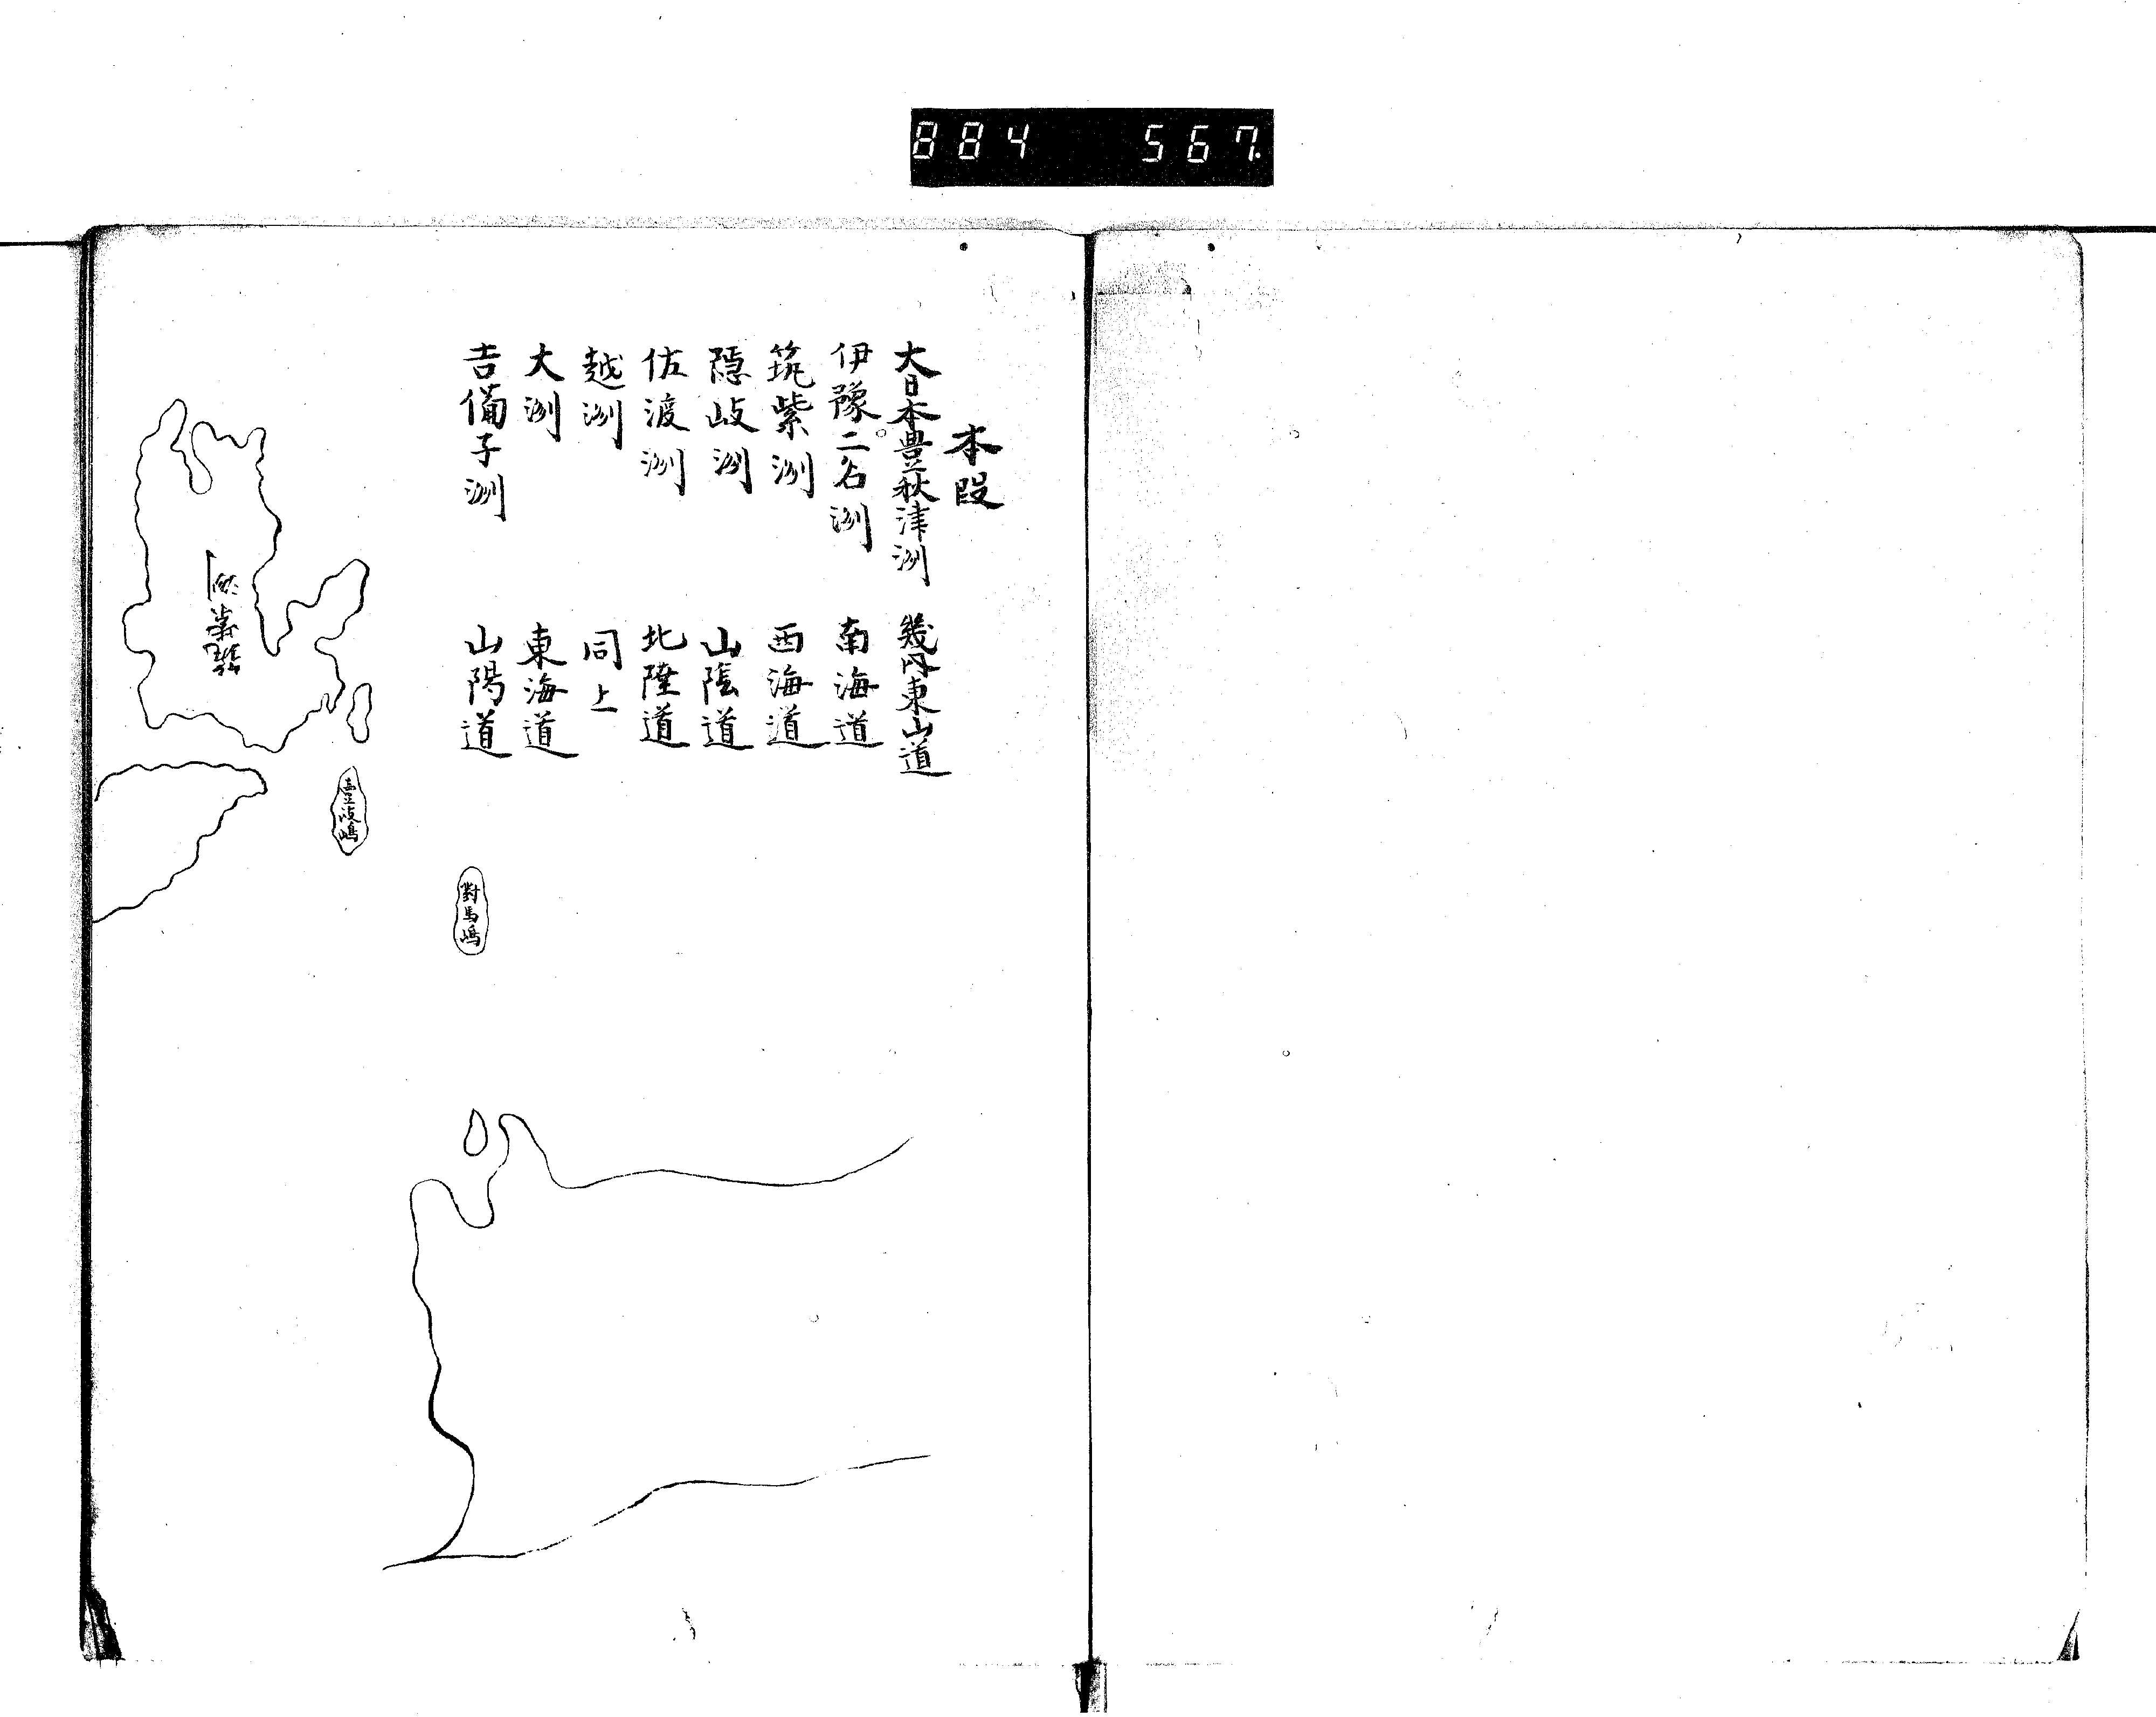 884 567
本段
大日本豊秋津洲 幾内東山道
伊豫二名洲 南海道
筑紫洲 西海道
隠岐洲 山陰道
佐渡洲 北陸道
越洲 同上
大洲 東海道
吉備子洲 山陽道
筑紫洲
壹岐嶋
對馬嶋